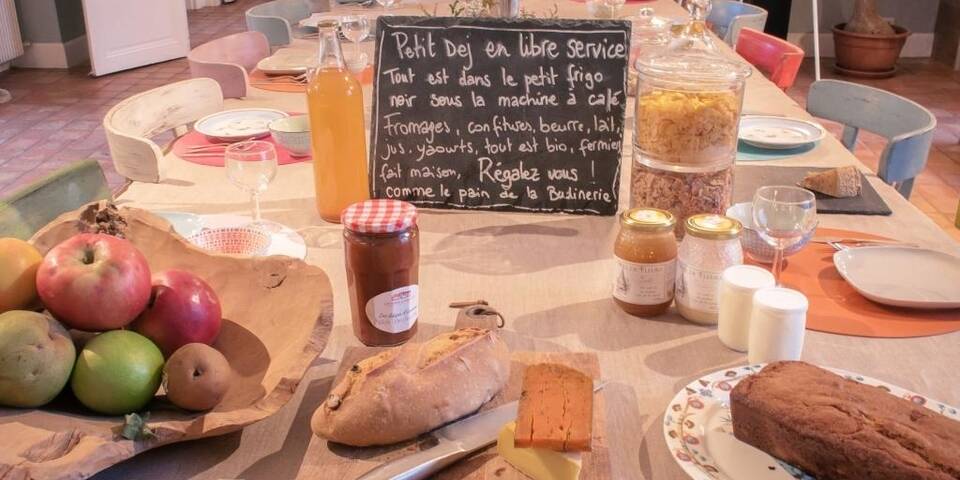 Petit Dej en libre service
Tout est dans le petit frigo
noir sous la machine à café
Fromages, confitures, beurre, lait,
jus, yaourts, tout est bio, fermier
fait maison, Régalez vous !
comme le pain de la Budinerie!